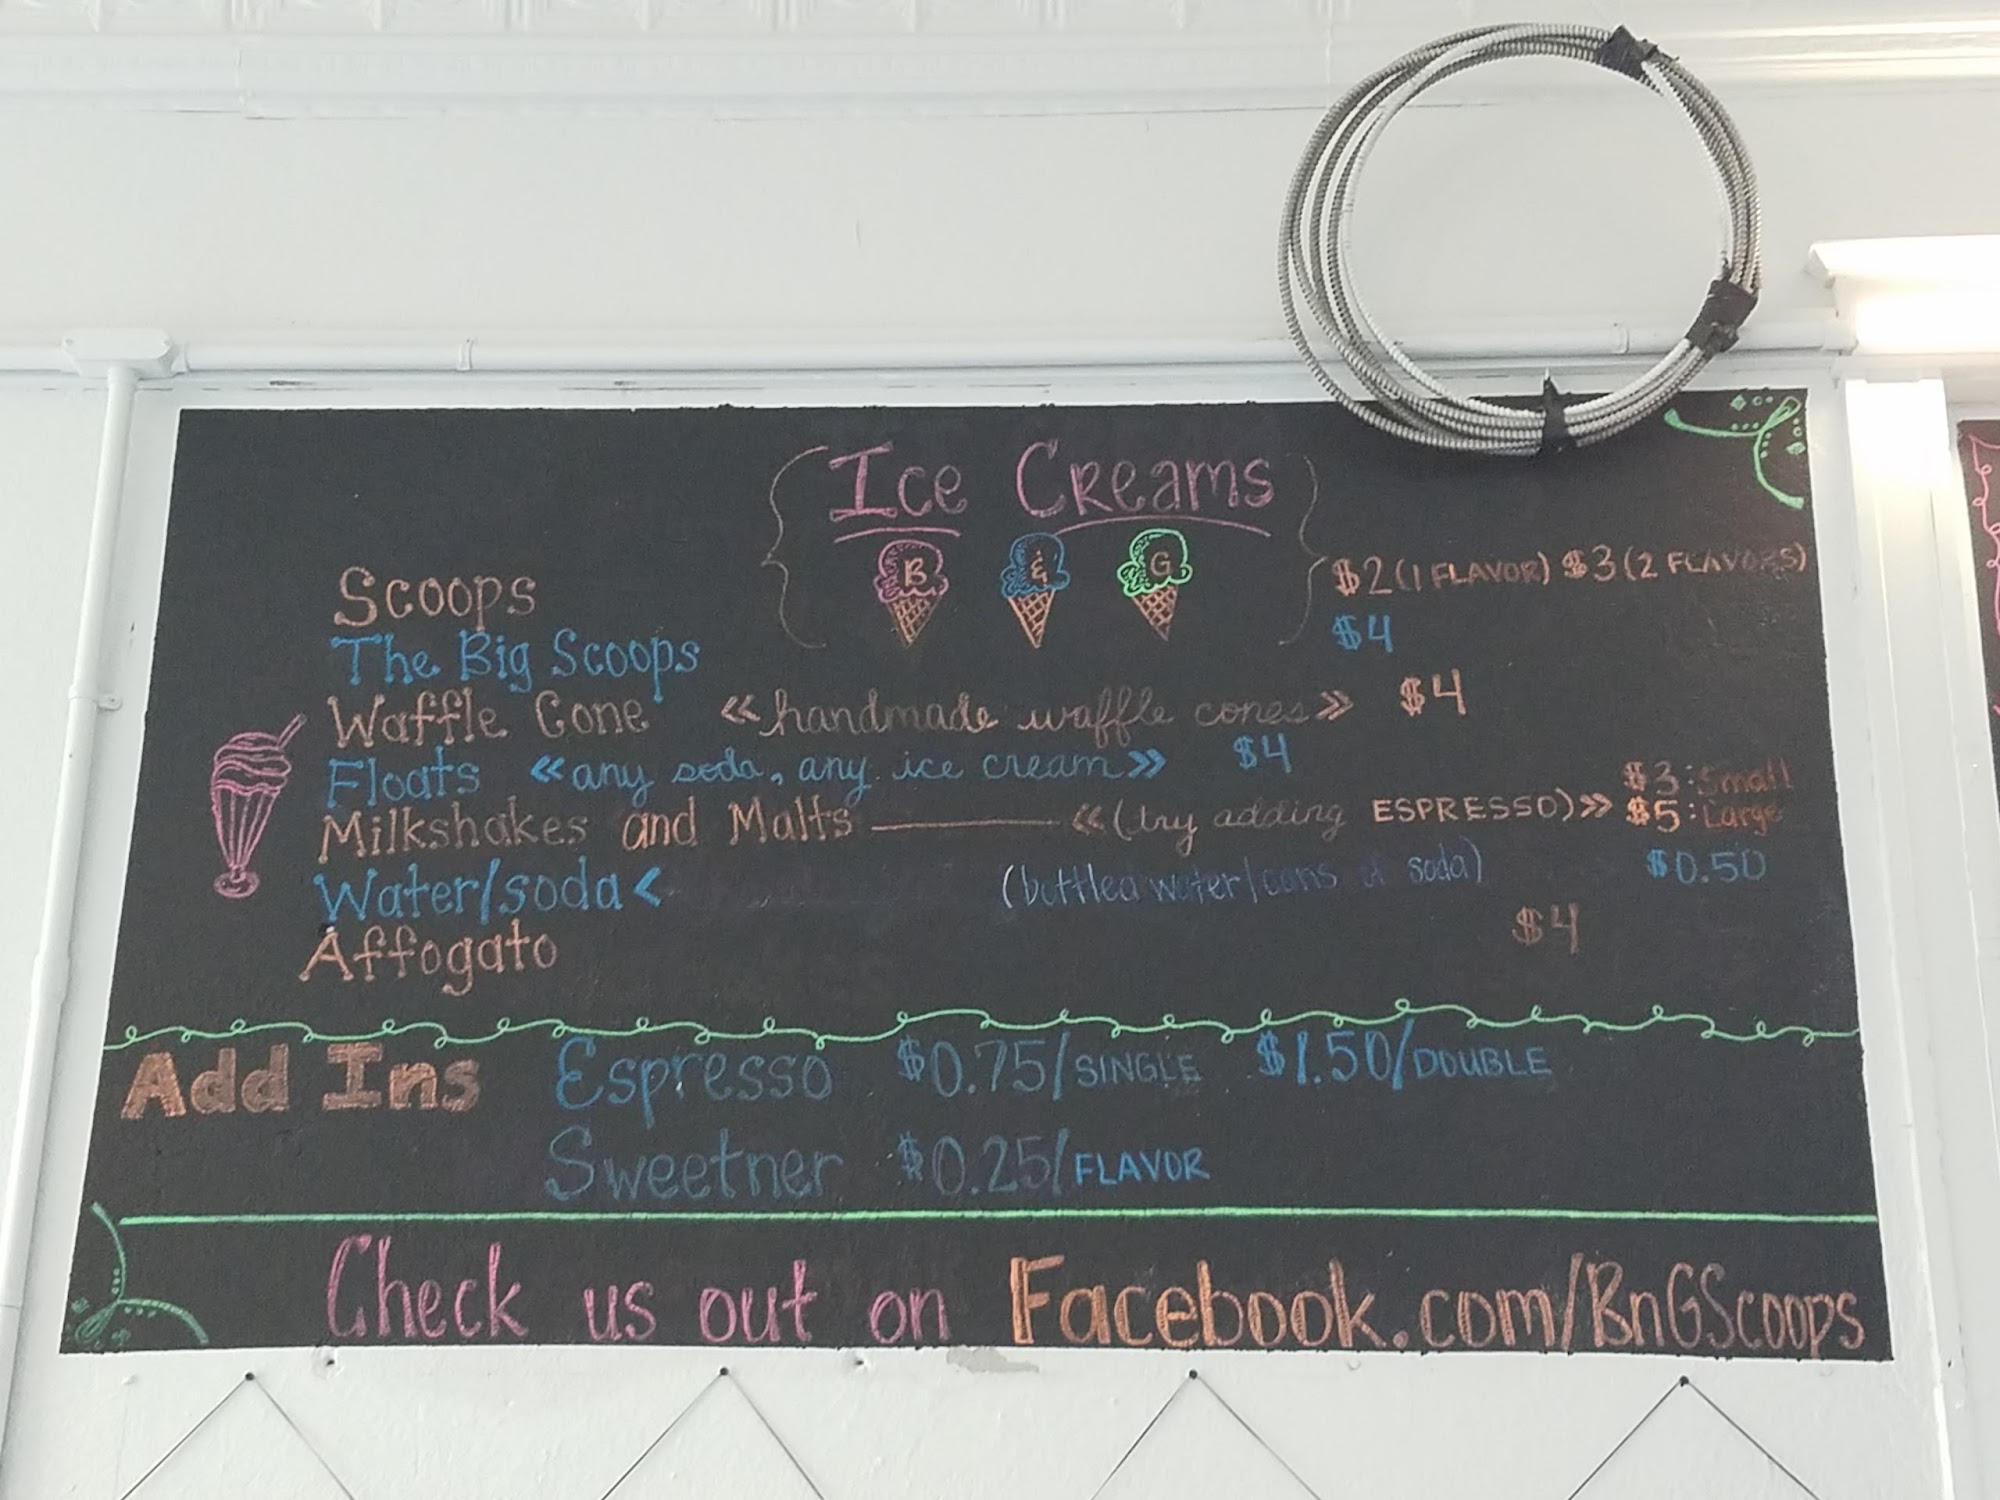 Ice Creams
B & G
Scoops $2 (1 FLAVOR) $3 (2 FLAVORS)
The Big Scoops $4
Waffle Cone «handmade waffle cones» $4
Floats «any soda, any ice cream» $4
$3: Small
Milkshakes and Malts —— «(try adding ESPRESSO)» $5: Large
Water/soda < (bottled water/cans of soda) $0.50
Affogato $4
Add Ins Espresso $0.75/SINGLE $1.50/DOUBLE
Sweetner $0.25/FLAVOR
Check us out on Facebook.com/BnGScoops